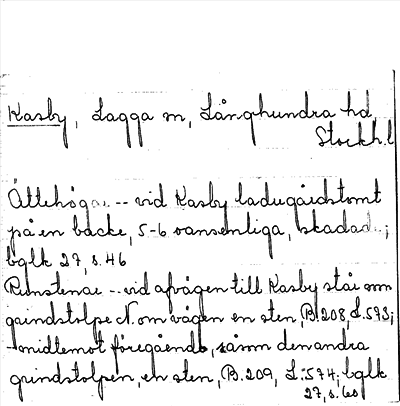 Kasby, Lagga sn, Långhundra hd,
Stockh. l
Ättehögar -- vid Kasby ladugårdstomt
på en backe, 5-6 oansenliga, skadad..;
bglk 27, s. 46
Runstenar -- vid afvägen till Kasby står som
grindstolpe N. om vägen en sten, B. 208, L. 573;
- midtemot föregående, såsom den andra
grindstolpen, en sten, B. 209, L. 574; bglk
27, s. 60